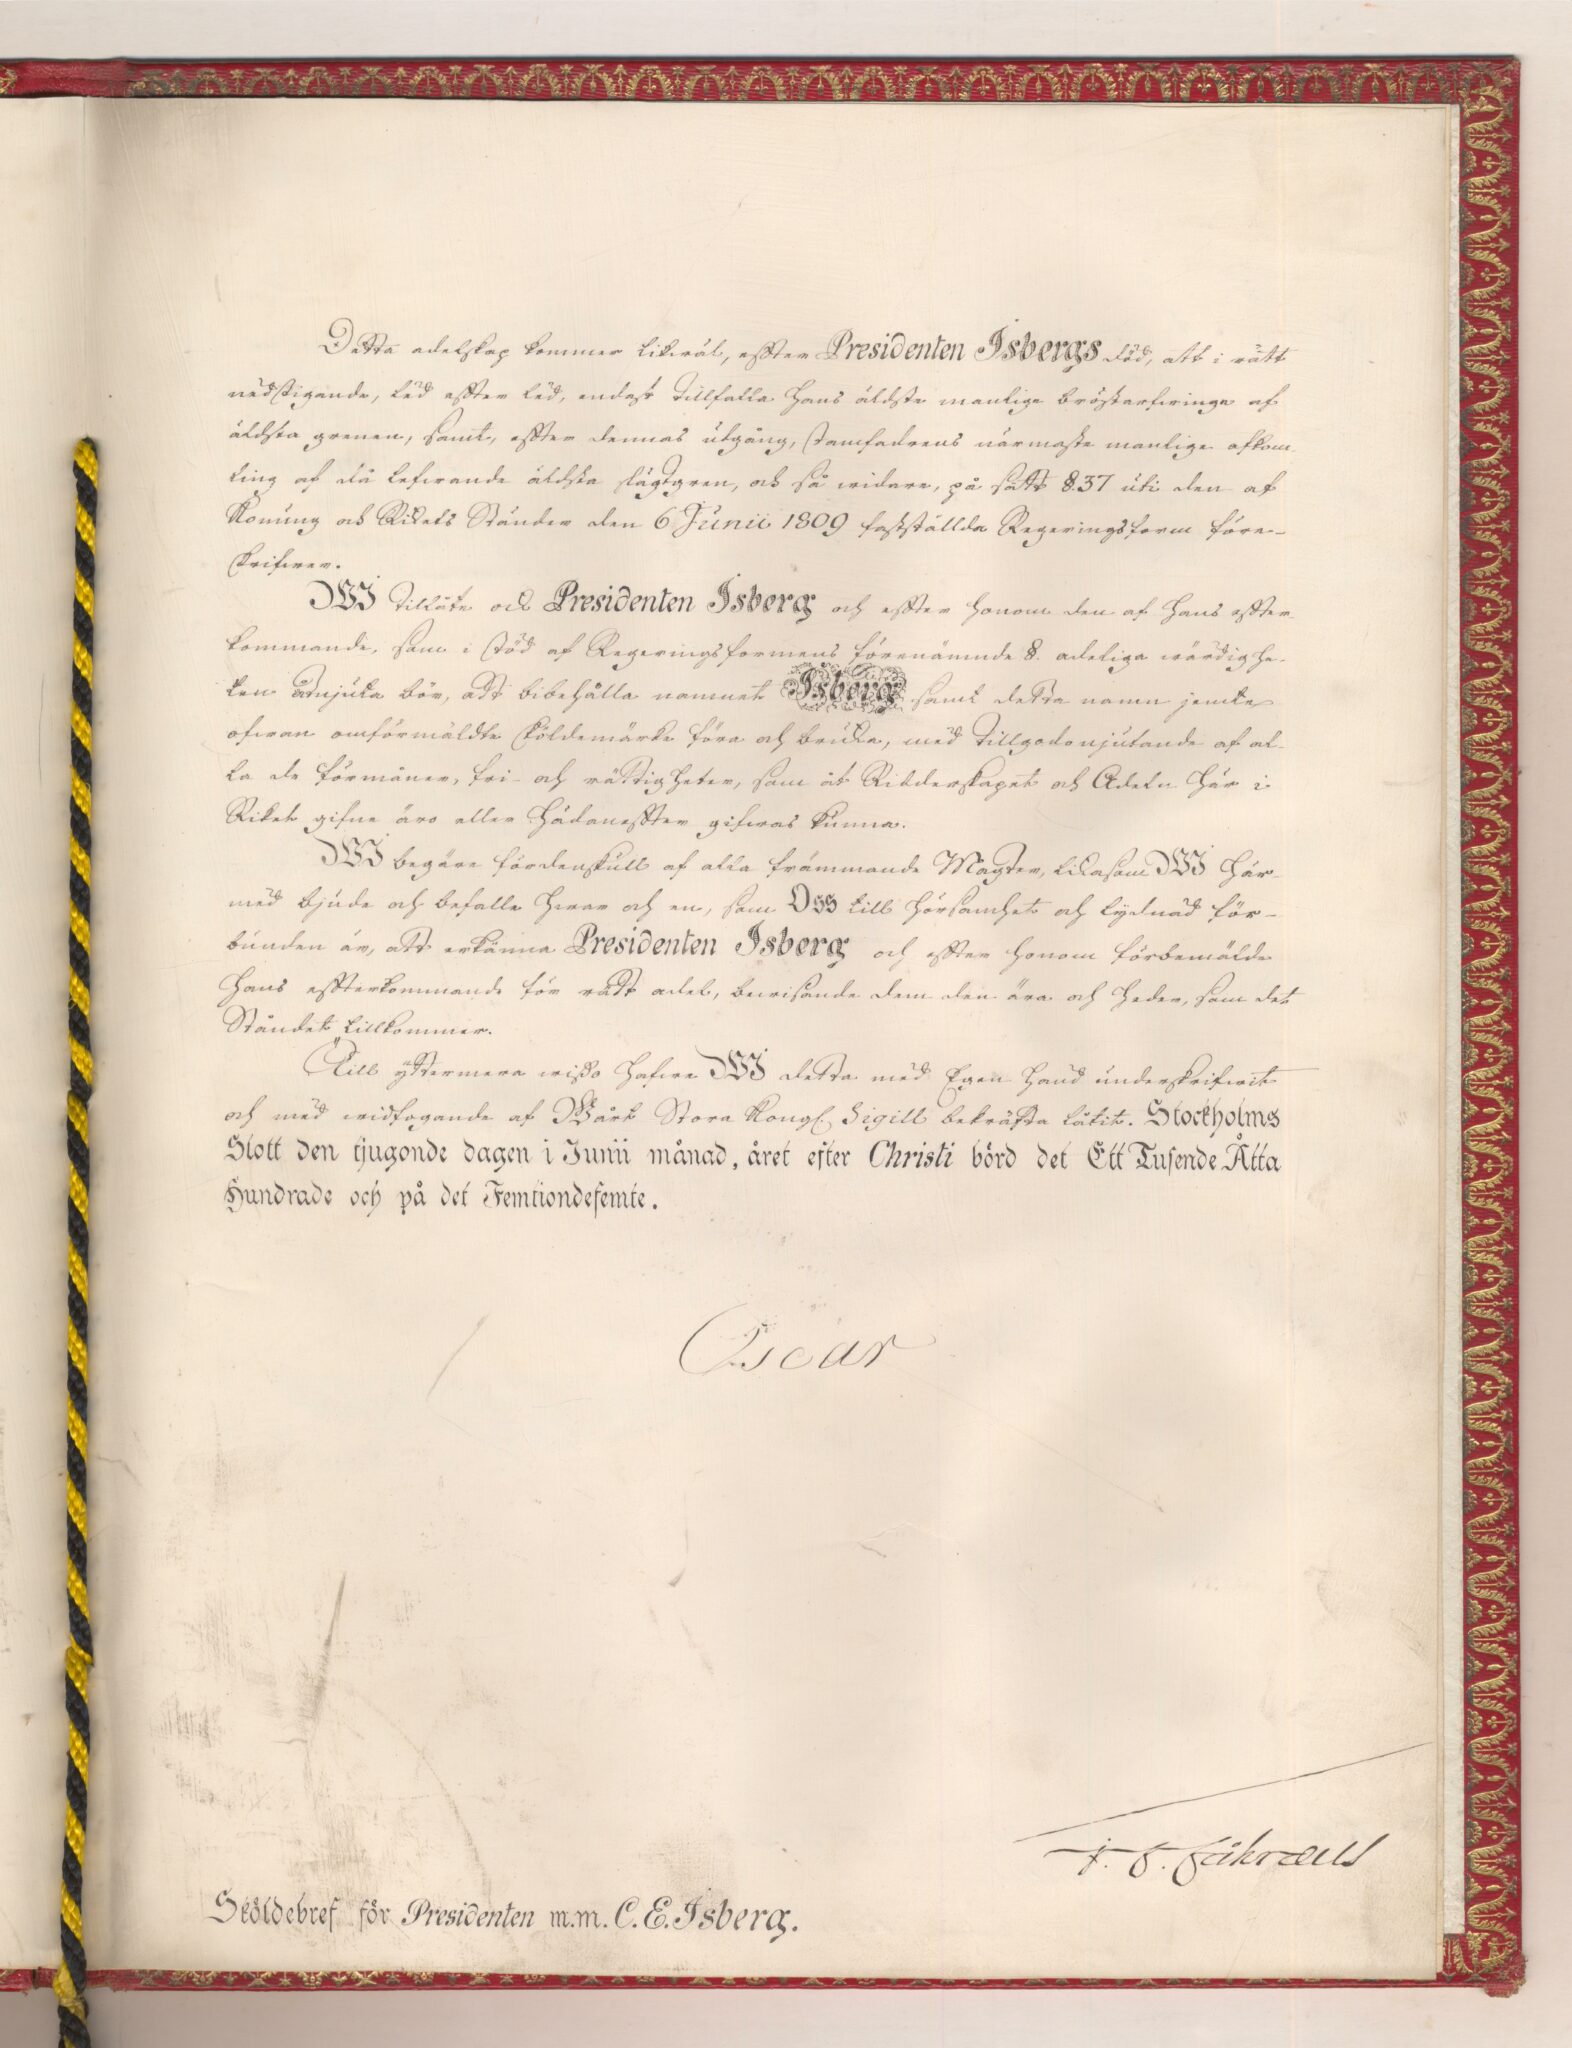 Detta adelskap kommer likwäl, efter Presidenten Isbergs död, att i rätt
nedstigande, led efter led, endast tillfalla Hans äldste manlige bröstarfwinge af
äldsta grenen, samt, efter dennas utgång, Stamfadrens närmaste manlige afkom
ling af då lefwande äldsta slägtgren, och så widare, på sätt §.37 uti den af
Konung och Rikets Ständer den 6 Junii 1809 fastställda Regeringsform före-
skrifwer.
WI tillåte ock Presidenten Isberg och efter honom den af Hans efter
kommande, som i stöd af Regeringsformens förenämnde §. adeliga wärdighe-
ten åtnjuta bör, att bibehålla namnet Isberg samt detta namn jemte
ofwan omförmäldte Sköldemärke föra och bruka, med tillgodonjutande af al-
la de förmåner, fri- och rättigheter, som åt Ridderskapet och Adeln här i
Riket gifne äro eller hädanefter gifwas kunna.
WI begäre fördenskull af alla främmande Magter, likasom WI här-
med bjude och befalle hwar och en, som Oss till hörsamhet och lydnad för-
bunden är, att erkänna Presidenten Isberg och efter honom förbemälde
Hans efterkommande för rätt adel, bewisande dem den ära och heder, som det
Ståndet tillkommer.
Till yttermera wisso hafwe WI detta med Egen hand underskrifwit
och med widfogande af Wårt Stora Kongl. Sigill bekräfta låtit. Stockholms
Slott den tjugonde dagen i Junii månad, året efter Christi börd det Ett Tusende Åtta
Hundrade och på det Femtiondefemte.
Oscar
F. F. Fåhræus
Sköldebref för Presidenten m.m. C. E. Isberg.